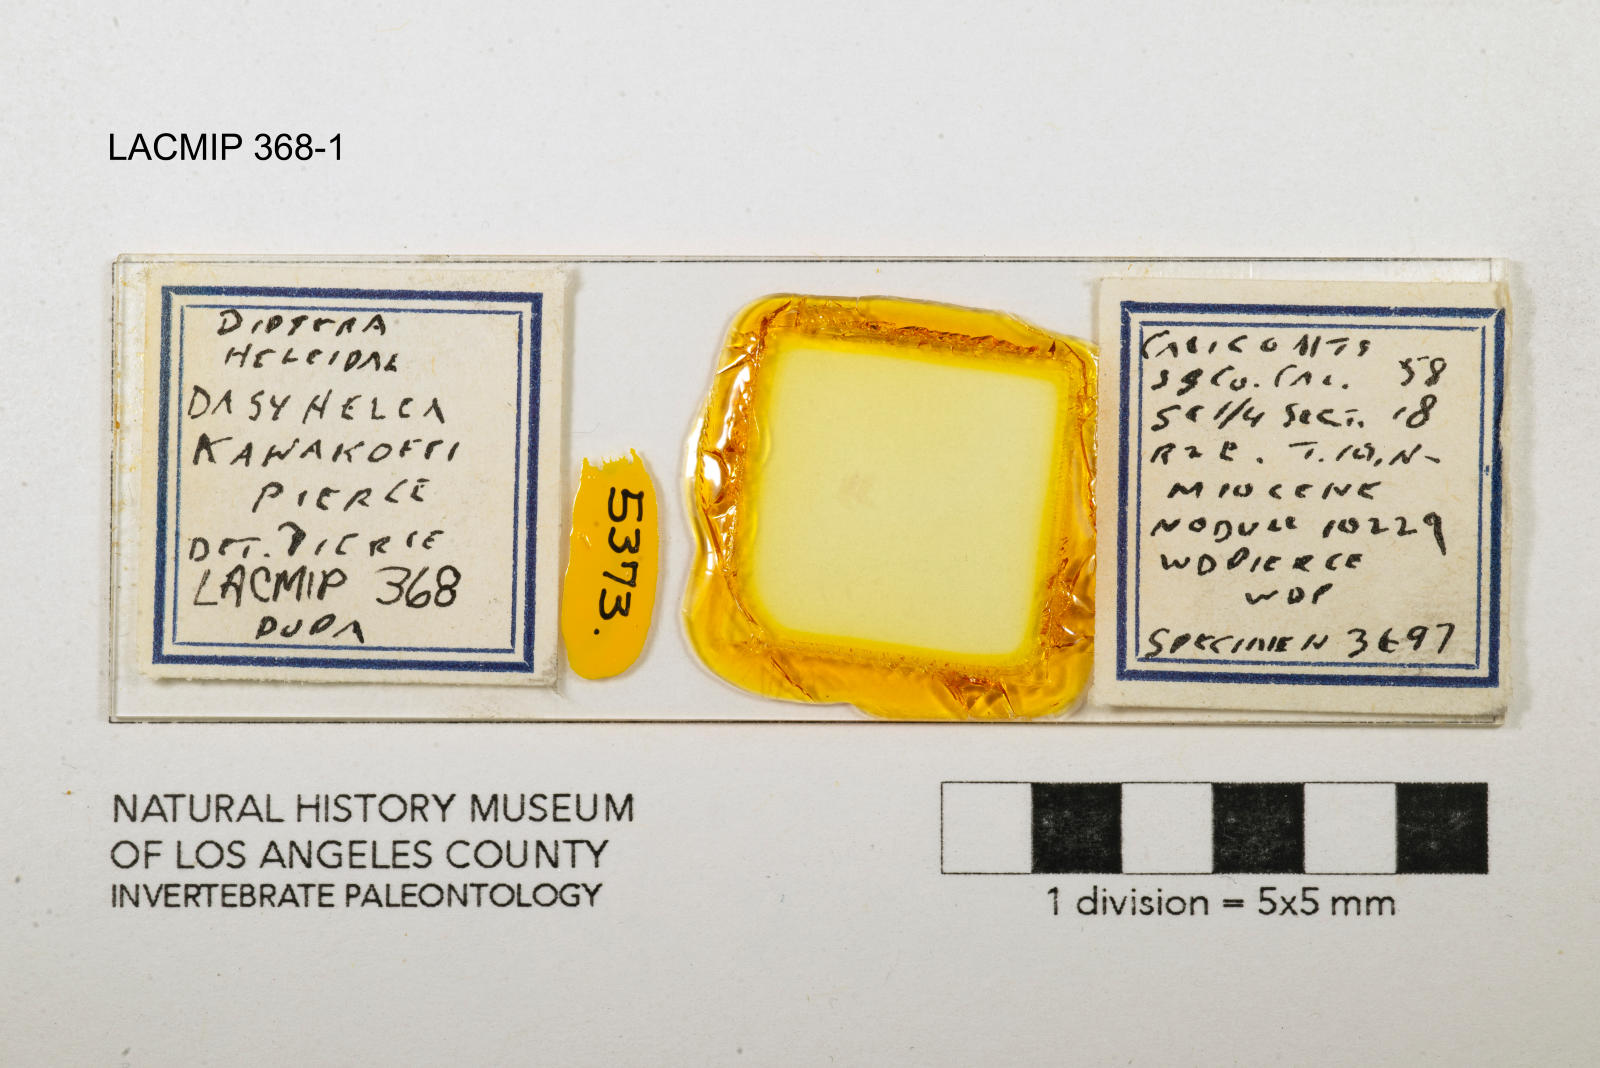 LACMIP 368-1
DIPTERA
HELEIDAE
DASYHELEA
KANAKOFFI
PIERCE
DET. PIERCE
LACMIP 368
PUPA
5373.
CALICO MTS
SB CO. CAL. 58
SE 1/4 SECT. 18
R2E. T.10.N-
MIOCENE
NODULE 10229
WDPIERCE
WDP
SPECIMEN 3E97
NATURAL HISTORY MUSEUM
OF LOS ANGELES COUNTY
INVERTEBRATE PALEONTOLOGY
1 division = 5x5 mm